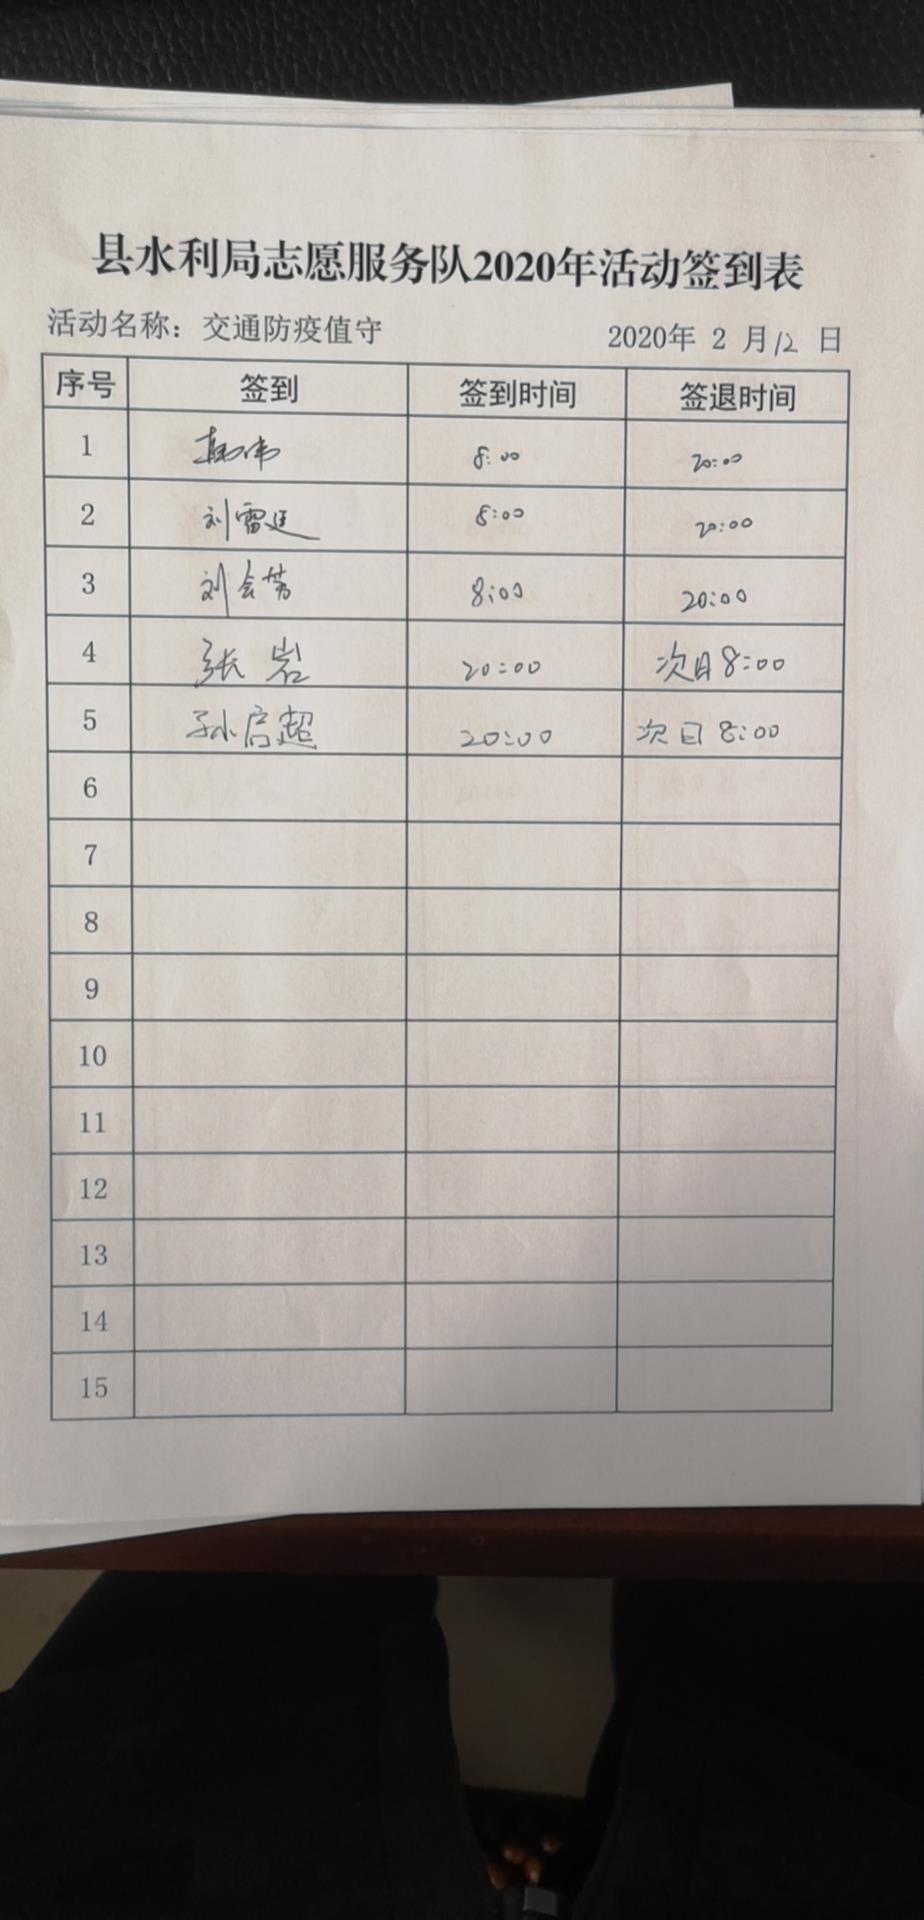 县水利局志愿服务队2020年活动签到表
活动名称：交通防疫值守 2020年 2 月12 日
序号 签到 签到时间 签退时间
1 韩伟 8:00 20:00
2 刘雷廷 8:00 20:00
3 刘会芳 8:00 20:00
4 张岩 20:00 次日8:00
5 孙启超 20:00 次日8:00
6
7
8
9
10
11
12
13
14
15